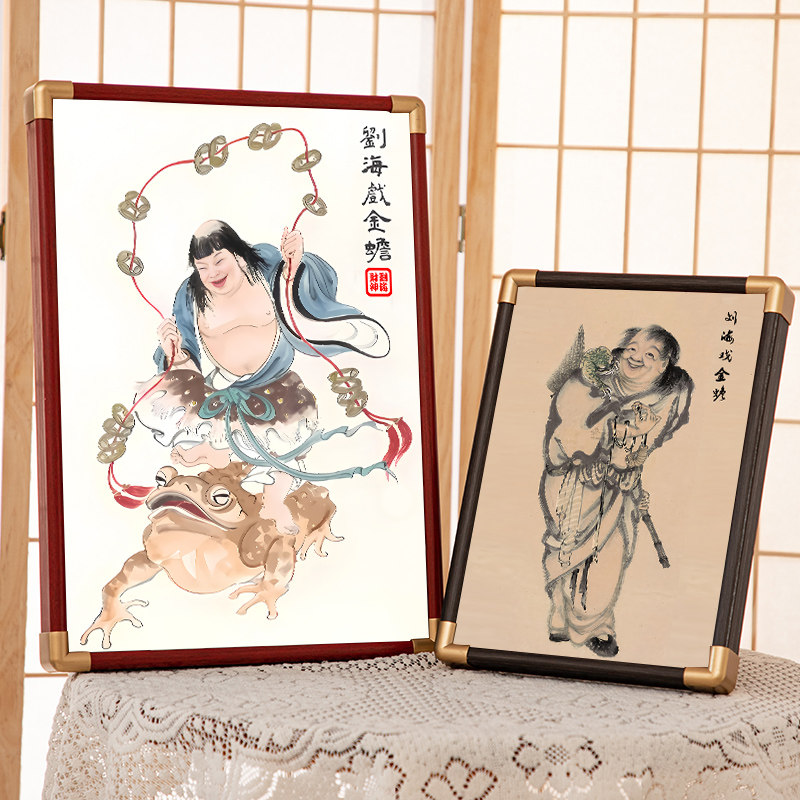 劉海戲金蟾
財神
刘海戏金蟾